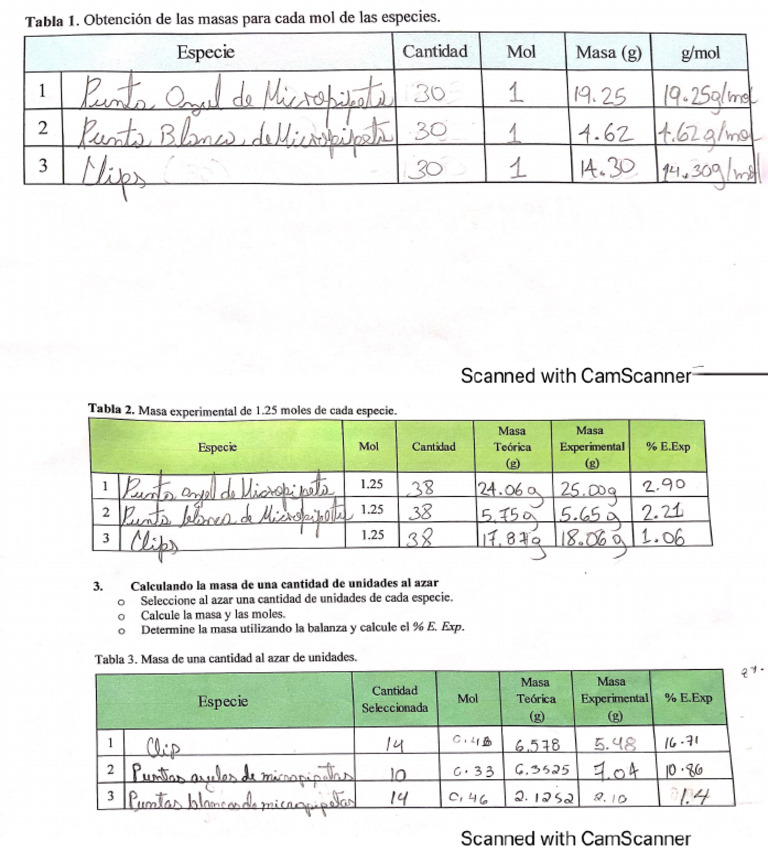 Tabla 1. Obtención de las masas para cada mol de las especies.
Especie Cantidad Mol Masa (g) g/mol
1 Punta Azul de Micropipeta 30 1 19.25 19.25g/mol
2 Punta Blanca de Micropipeta 30 1 4.62 4.62g/mol
3 Clips 30 1 14.30 14.30g/mol
Scanned with CamScanner
Tabla 2. Masa experimental de 1.25 moles de cada especie.
Especie Mol Cantidad Masa Teórica (g) Masa Experimental (g) % E.Exp
1 Punta azul de Micropipeta 1.25 38 24.06g 25.00g 2.90
2 Punta blanca de Micropipeta 1.25 38 5.75g 5.65g 2.21
3 Clips 1.25 38 17.87g 18.06g 1.06
3. Calculando la masa de una cantidad de unidades al azar
o Seleccione al azar una cantidad de unidades de cada especie.
o Calcule la masa y las moles.
o Determine la masa utilizando la balanza y calcule el % E. Exp.
Tabla 3. Masa de una cantidad al azar de unidades.
Especie Cantidad Seleccionada Mol Masa Teórica (g) Masa Experimental (g) % E.Exp
1 Clip 14 6.578 5.48 16.71
2 Puntas azules de micropipetas 10 0.33 6.3525 7.04 10.86
3 Puntas blancas de micropipetas 14 0.46 2.1252 2.10 1.4
Scanned with CamScanner